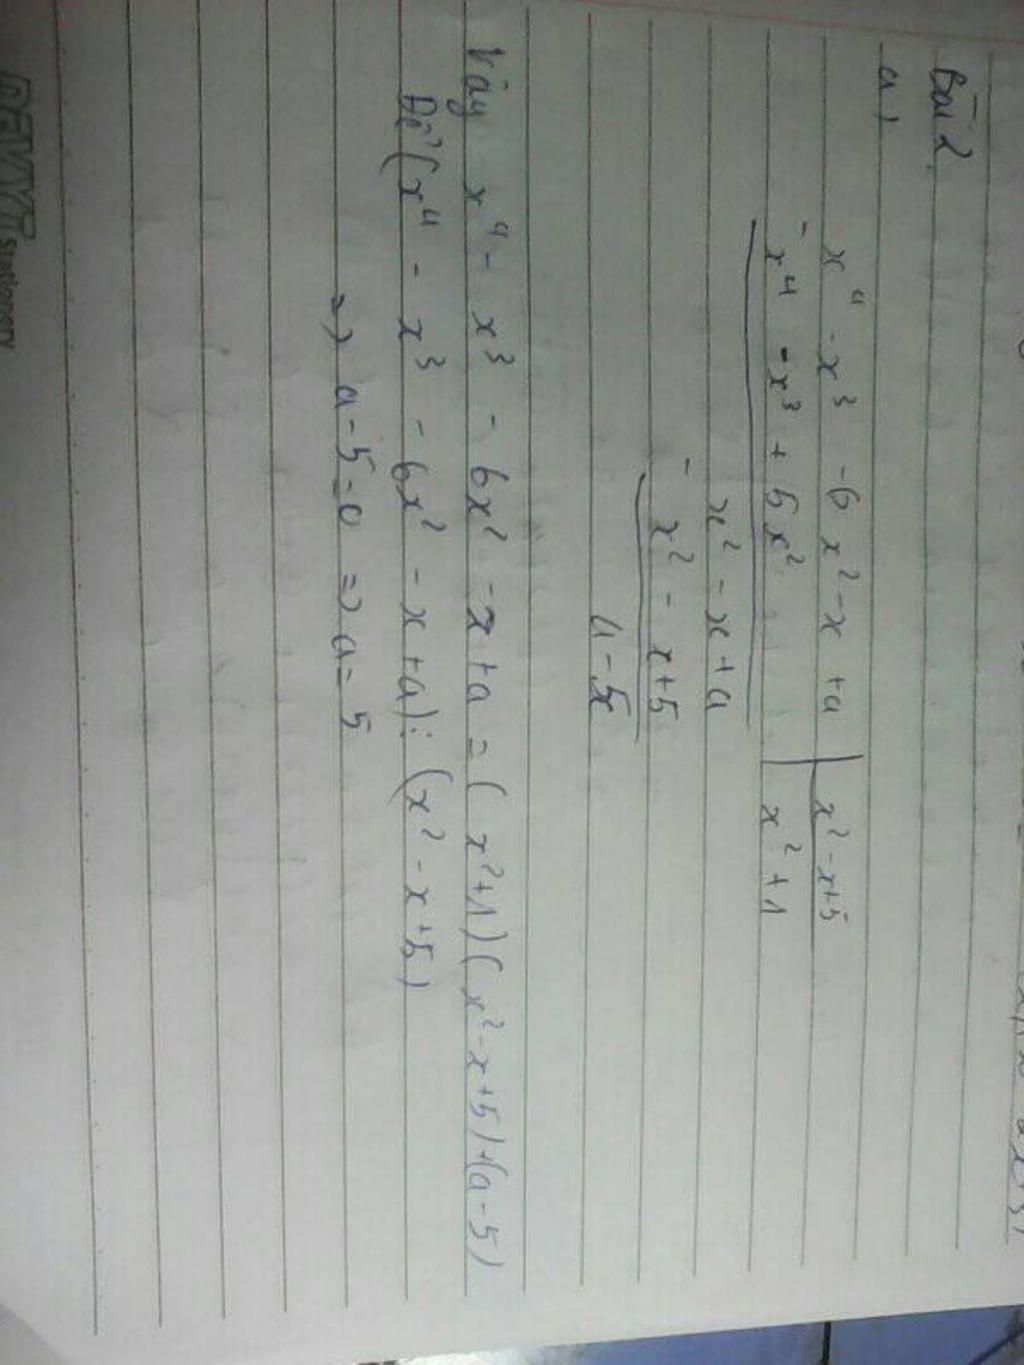 Bài 2
a)
x⁴ - x³ - 6x² - x + a | x² - x + 5
- x⁴ - x³ + 5x² | x² + 1
x² - x + a
- x² - x + 5
a - 5
Vậy x⁴ - x³ - 6x² - x + a = (x² + 1)(x² - x + 5) + (a - 5)
Để (x⁴ - x³ - 6x² - x + a) : (x² - x + 5)
=> a - 5 = 0 => a = 5
stationery